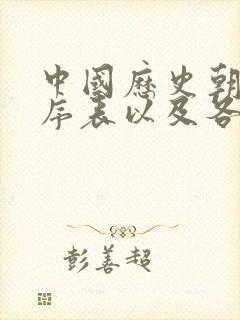 中國歷史朝
序表以及各
彭善超